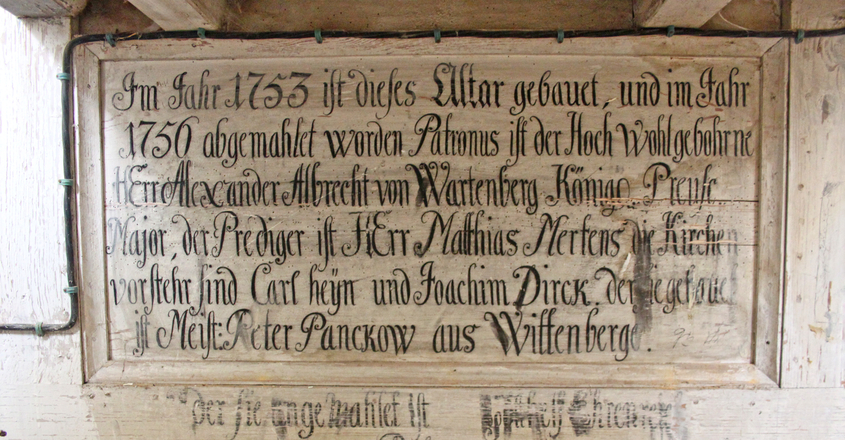 Im Jahr 1753 ist dieses Altar gebauet, und im Jahr
1756 abgemahlet worden Patronus ist der Hoch Wohlgebohrne
HErr Alexander Albrecht von Wartenberg Königs. Preuß.
Major, der Prediger ist HErr Matthias Mertens die Kirchen
vorstehr sind Carl heÿn und Joachim Dirck. der
ist Meist: Peter Panckow aus Wittenberge.
der sie angemahlet ist